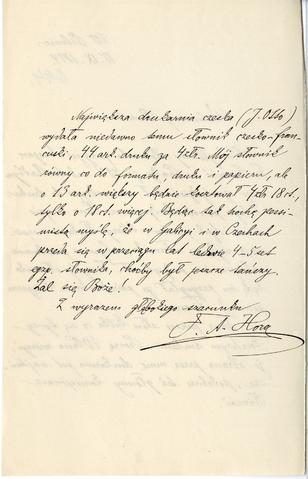 Największa drukarnia czeska (J. Otto)
wydała niedawno temu słownik czesko-fran-
cuski, 44 ark. druku za 4 złr. Mój słownik
równy co do formatu, druku i papieru, ale
o 15 ark. większy będzie kosztował 4 złr 18 ct,
tylko o 18 ct. więcej. Będąc tak trochę pesy-
mistą myślę, że w Galicyi i w Czechach
przeda się w przeciągu lat ledwie 4-5 set
egz. słownika, choćby był jeszcze tańszy.
Żal się Boże!
Z wyrazem głębokiego szacunku
F. A. Hora